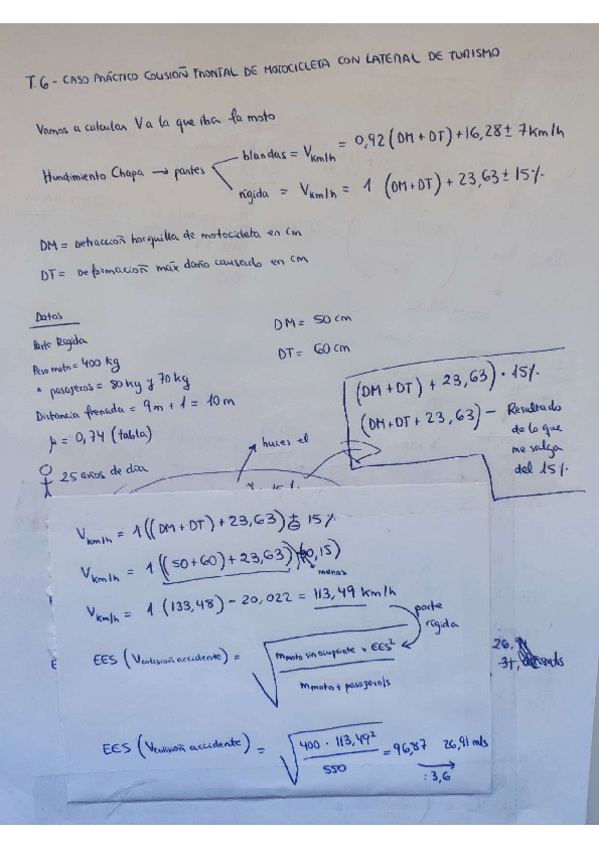 T.6 - CASO PRÁCTICO COLISIOÑ FRONTAL DE MOTOCICLETA CON LATERAL DE TURISMO
Vamos a calcular V a la que iba la moto
Hundimiento Chapa → partes
blandas = V km/h = 0,92 (DM + DT) + 16,28 ± 7 Km/h
rigida = V km/h = 1 (DM + DT) + 23,63 ± 15%
DM = Detraccioñ horquilla de motocicleta en cm
DT = Deformacioñ máx daño causado en cm
Datos
Parte Rigida
Peso moto = 400 kg
" pasajeros = 80 kg y 70 kg
Distancia frenada = 9m + 1 = 10m
μ = 0,74 (tabla)
25 años de día
DM = 50 cm
DT = 60 cm
(DM + DT) + 23,63) · 15%
(DM + DT + 23,63) - Resultado
de lo que
me salga
del 15%
haces el
V km/h = 1 ((DM + DT) + 23,63) ± 15%
V km/h = 1 ((50 + 60) + 23,63) (0,15)
menos
V km/h = 1 (133,48) - 20,022 = 113,49 Km/h
parte
rigida
EES (Vcolisioñ accidente) = √ m moto sin ocupante × EES²
m moto + pasajero/s
26.
EES (Vcolisioñ accidente) = √ 400 · 113,49² = 96,87 26,91 m/s
550
: 3,6